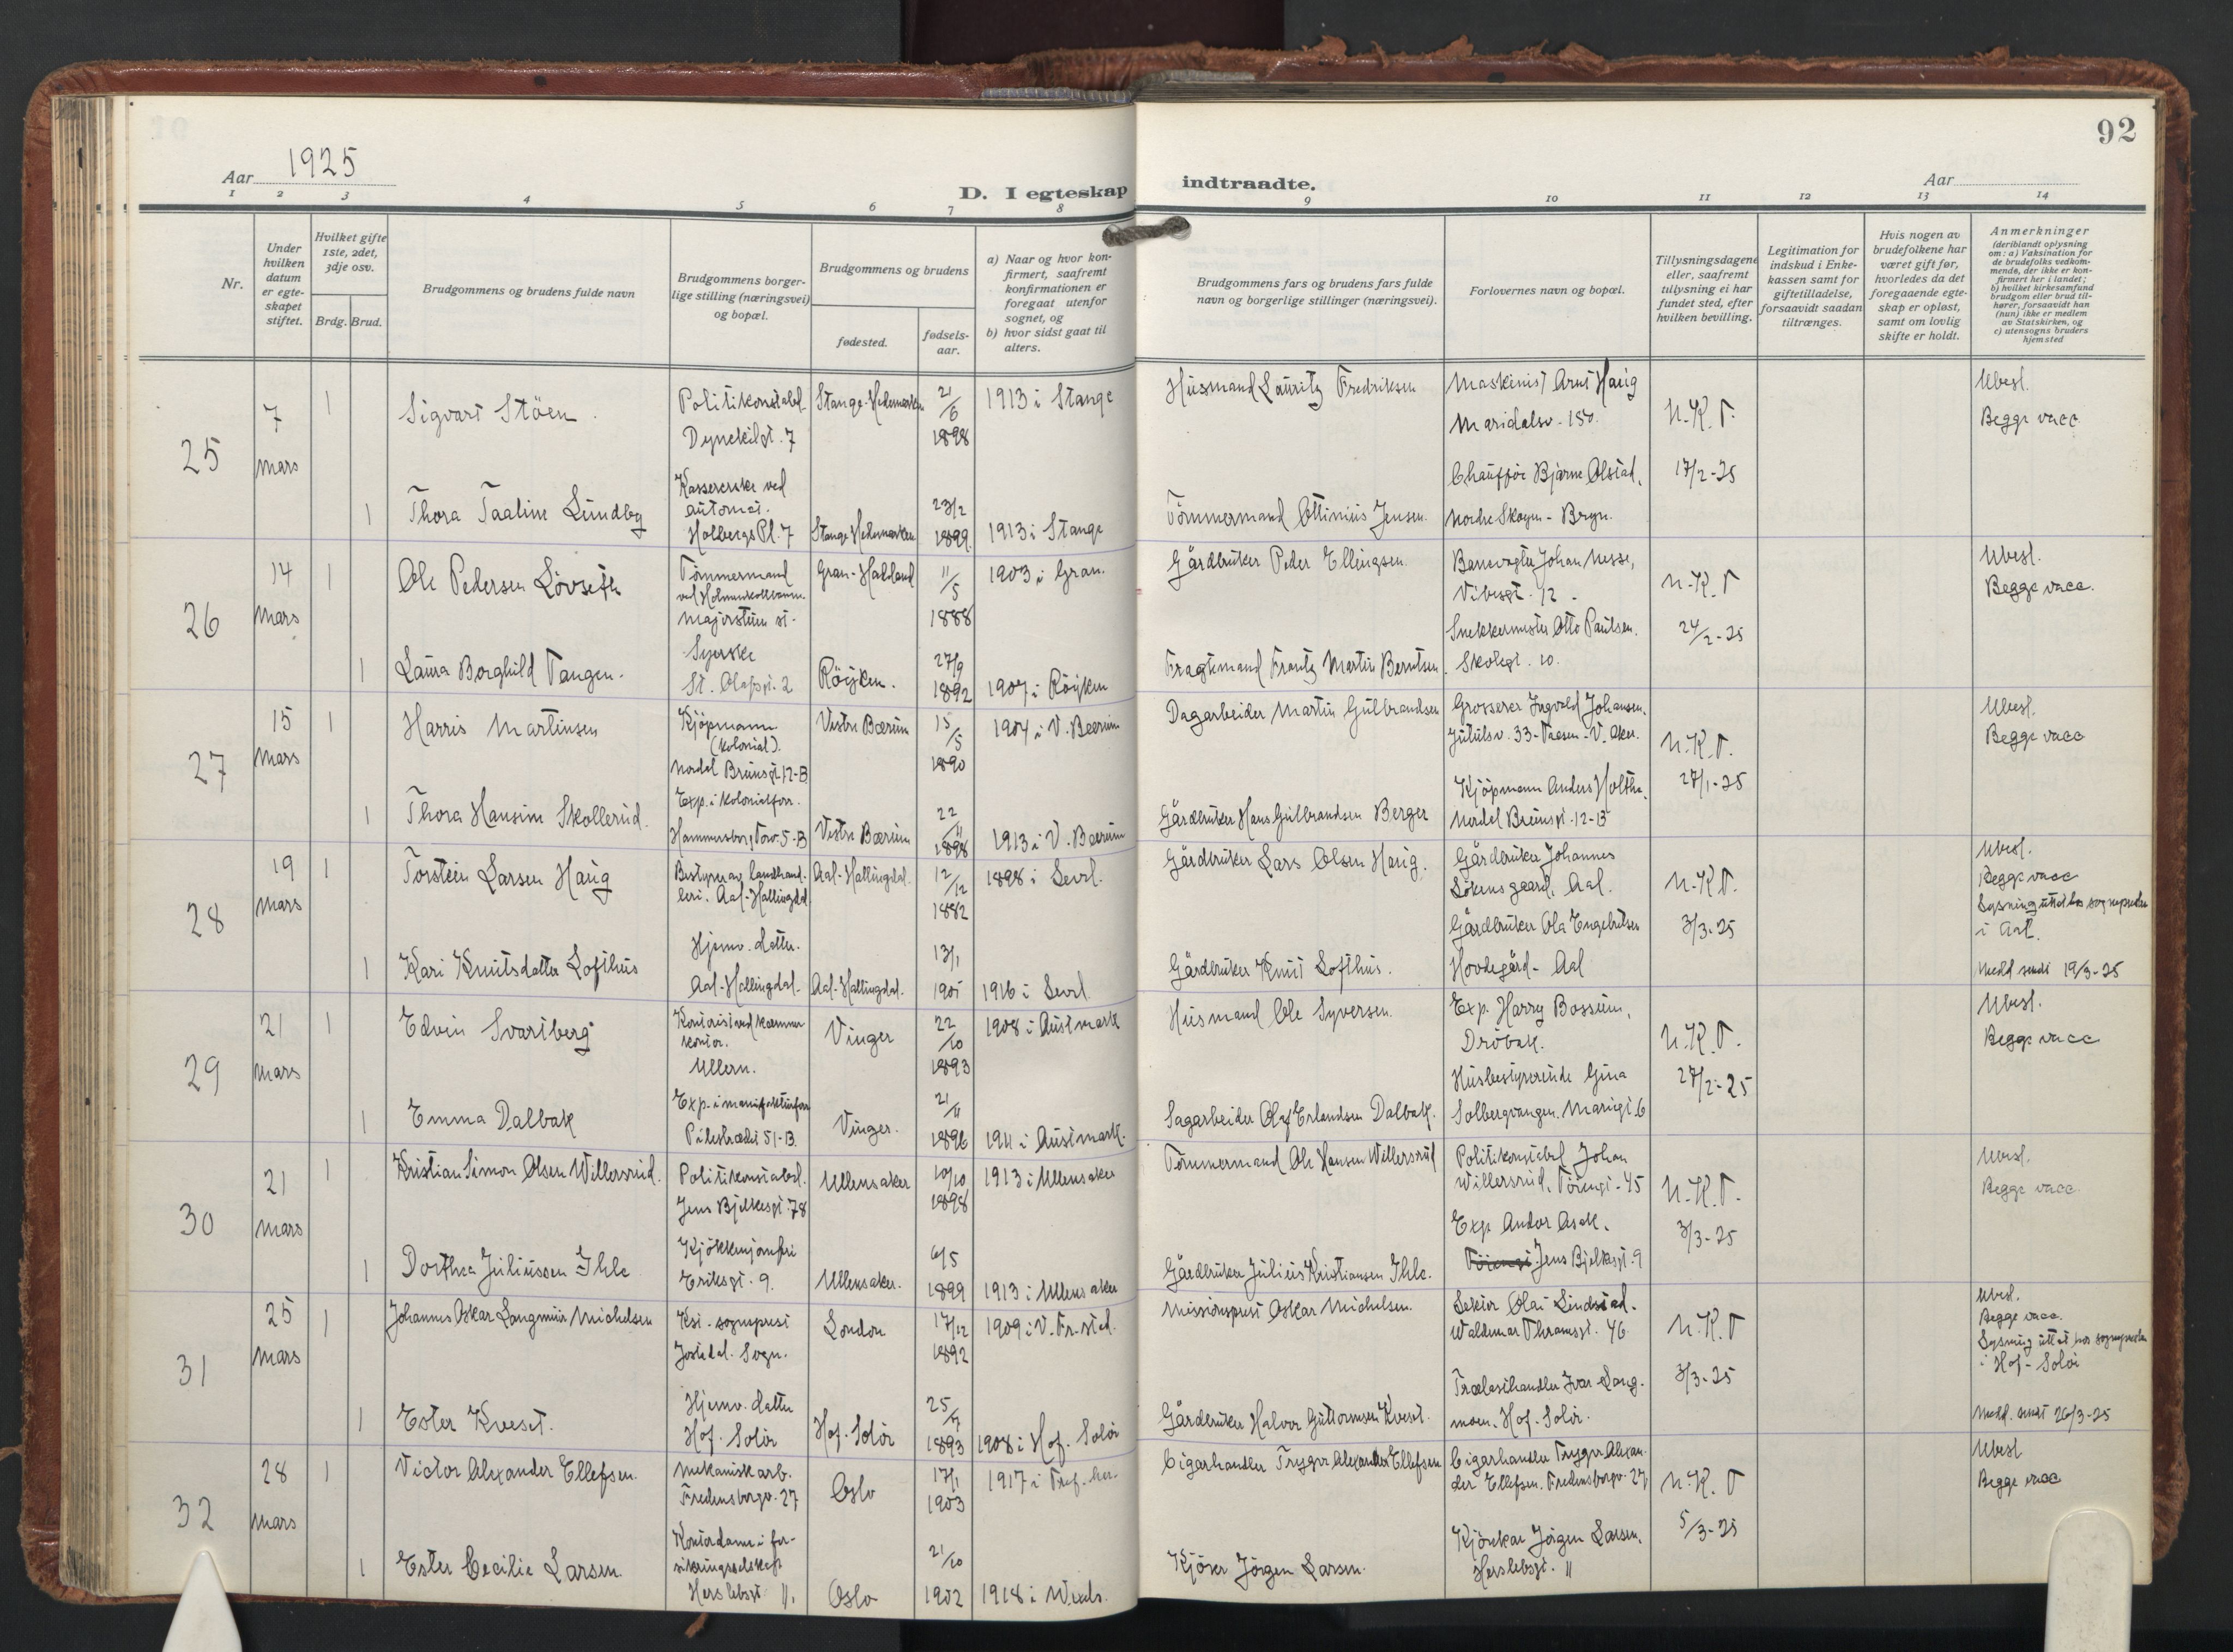 92
Aar 1925
D. I egteskap indtraadte.
Aar
1 2 3 4 5 6 7 8 9 10 11 12 13 14
Nr.
Under hvilken datum er egteskapet stiftet.
Hvilket gifte 1ste, 2det, 3dje osv.
Brdg. Brud.
Brudgommens og brudens fulde navn
Brudgommens borgerlige stilling (næringsvei) og bopæl.
Brudgommens og brudens
fødested.
fødsels-aar.
a) Naar og hvor konfirmert, saafremt konfirmationen er foregaat utenfor sognet, og
b) hvor sidst gaat til alters.
Brudgommens fars og brudens fars fulde navn og borgerlige stillinger (næringsvei).
Forlovernes navn og bopæl.
Tillysningsdagene eller, saafremt tillysning ei har fundet sted, efter hvilken bevilling.
Legitimation for indskud i Enkekassen samt for giftetilladelse, forsaavidt saadan tiltrænges.
Hvis nogen av brudefolkene har været gift før, hvorledes da det foregaaende egteskap er opløst, samt om lovlig skifte er holdt.
Anmerkninger
(deriblandt oplysning om: a) Vaksination for de brudefolks vedkommende, der ikke er konfirmert her i landet;
b) hvilket kirkesamfund brudgom eller brud tilhører, forsaavidt han (hun) ikke er medlem av Statskirken, og
c) utensogns bruders hjemsted
25
7 mars
1 Sigvart Stöen
Politikonstabel
Dynekilgt. 7
Stange-Hedemarken
21/6 1898
1913 i Stange
Husmand Lauritz Fredriksen
Maskinist Arnt Haug
Maridalsv. 150.
N.K.T.
Ubesl.
Begge vacc
1 Thora Taaline Lundbg
Kassererske ved automat.
Holbergs Pl. 7
Stange Hedemarken
23/2 1899
1913 i Stange
Tömmermand Ottinius Jensen.
Chaufför Bjarne Olstad,
Nordre Skøyen - Bryn.
17/2-25
26
14 Mars
1 Ole Pedersen Lövseth
Tömmermand
ved Holmenkollbanen.
Majorstuen st.
Gran-Hadeland
11/5 1888
1903 i Gran.
Gårdbruker Peder Ellingsen.
Banevogter Johan Nesse,
Vibesgt. 12
N.K.T
Ubesl.
Begge vacc.
1 Laura Borghild Tangen.
Syerske
St. Olafsgt. 2
Röyken.
27/9 1892
1907 i Röyken
Fragtemand Frantz Martin Berntsen.
Snekkermester Otto Paulsen.
Skolegt. 10.
24/2-25
27
15 Mars
1 Harris Martinsen
Kjöpmann
(kolonial).
Nordal Brunsgt 12-B
Vestre Bærum
15/5 1890
1904 i V. Bærum
Dagarbeider Martin Gulbrandsen
Grosserer Ingvald Johansen.
Jutulsv. 33-Taasen-V. Aker.
N.K.T.
Ubesl.
Begge vacc
1 Thora Hansine Skollerud.
Exp. i kolonialforr.
Hammersborg Torv. 5-B
Vestre Bærum
22/11 1898
1913 i V. Bærum
Gårdbruker Hans Gulbrandsen Berger
Kjöpmann Anders Holthe,
Nordal Brunsgt. 12-B
27/1-25
28
19 Mars
1 Torstein Larsen Haug
Bestyrer av landhand-
leri. Aal-Hallingdal
Aal-Hallingdal.
12/12 1882
1898 i Levl.
Gårdbruker Lars Olsen Haug.
Gårdbruker Johannes
Lökensgaard, Aal.
N.K.T.
Ubesl.
Begge vacc
Lysning uttat hos sognepresten
i Aal.
1 Kari Knutsdatter Lofthus
Hjemv. datter.
Aal-Hallingdal-
Aal-Hallingdal.
13/1 1901
1916 i Levl
Gårdbruker Knut Lofthus.
Gårdbruker Ola Engebretsen
Hovdegård- Aal
3/3-25
Meld sendt 19/3-25
29
21 Mars
1 Edvin Svartberg
Kontorist ved kæmner
kontor.
Ullern.
Vinger
22/10 1893
1908 i Austmark
Husmand Ole Syversen.
Exp. Harry Bossum,
Dröbak.
N.K.T.
Ubesl.
Begge vacc
1 Emma Dalbak
Exp. i manufakturforr
Pilestrædet 51-B.
Vinger.
21/11 1896
1911 i Austmark.
Sagarbeider Olaf Erlandsen Dalbak.
Husbestyrerinde Gina
Solbergvangen. Mariegt. 6
27/2-25
30
21 Mars
1 Kristian Simon Olsen Willersrud.
Politikonstabel.
Jens Bjelkesgt. 78
Ullensaker
10/10 1898
1913 i Ullensaker
Tömmermand Ole Hansen Willersrud
Politikonstabel Johan
Willersrud, Töiengt-45
N.K.T.
Ubesl.
Begge vacc.
1 Dorthea Juliussen Ihle
Kjökkenjomfru
Eriksgt. 9.
Ullensaker.
6/5 1899
1913 i Ullensaker
Gårdbruker Julius Kristiansen Ihle.
Exp. Andor Asak,
Töiengt. Jens Bjelkesgt. 9
3/3-25
31
25 Mars
1 Johannes Oskar Langmuir Michelsen
Kst. sogneprest
Jostedal. Sogn.
London
17/12 1892
1909 i V. Fr.sted.
Missionsprest Oskar Michelsen.
Lektor Olai Lindstad.
Waldemar Thranesgt. 46
N.K.T
Ubesl.
Begge vacc.
Lysning uttat hos sognepresten
i Hof-Solör
1 Ester Kveset.
Hjemv. datter
Hof. Solör
Hof. Solör
25/7 1893
1908 i Hof. Solör
Gårdbruker Halvor Guttormsen Kveset.
Trælasthandler Ivar Lang-
moen. Hof. Solör.
3/3-25
Meld. sendt 26/3-25
32
28 Mars
1 Victor Alexander Ellefsen.
Mekanisk arb.
Fredensborgv. 27
Oslo
17/1 1903
1917 i Tref. her.
Cigarhandler Trygve Alexander Ellefsen
Cigarhandler Trygve Alexan-
der Ellefsen. Fredensborgv. 27
N.K.T
Ubesl
Begge vacc
1 Ester Cecilie Larsen.
Kontordame i for-
sikringsselskap
Herslebsgt. 11.
Oslo
21/10 1902
1918 i Wexels.
Kjörer Jörgen Larsen.
Kjörekar Jörgen Larsen,
Herslebsgt. 11
5/3-25